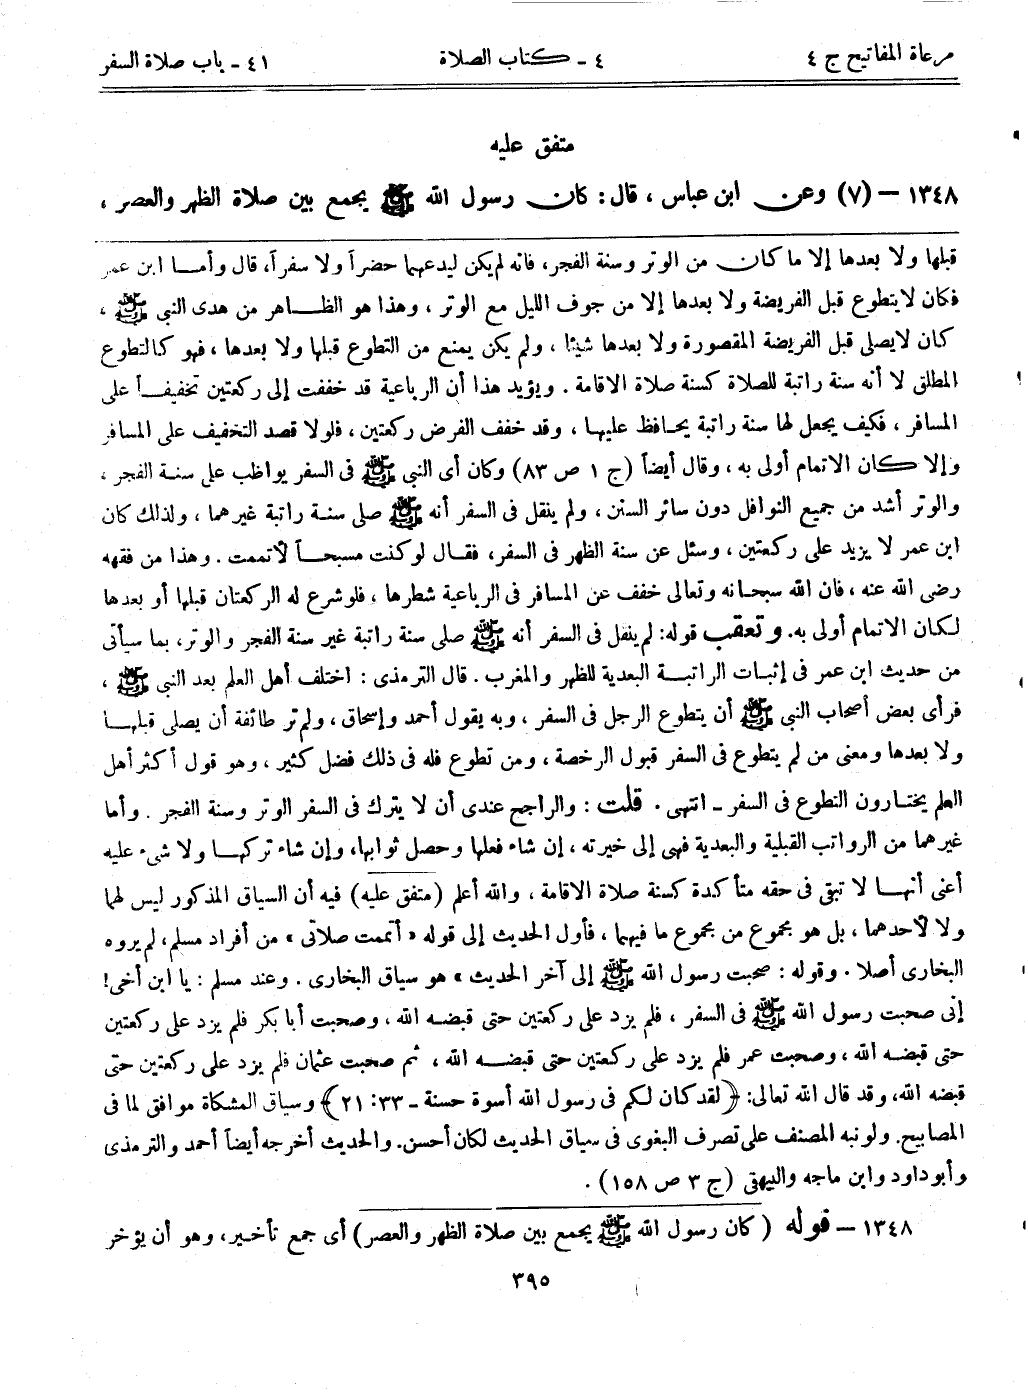 مرعاة المفاتيح ج ٤
٤ ـ كتاب الصلاة
٤١ ـ باب صلاة السفر
متفق عليه
١٣٤٨ – (٧) وعن ابن عباس ، قال: كان رسول الله ﷺ يجمع بين صلاة الظهر والعصر ،
قبلها ولا بعدها إلا ما كان من الوتر وسنة الفجر، فانه لم يكن ليدعهما حضراً ولا سفراً، قال وأمـا ابن عمر
فكان لا يتطوع قبل الفريضة ولا بعدها إلا من جوف الليل مع الوتر ، وهذا هو الظاهر من هدى النبي ﷺ ،
كان لايصلى قبل الفريضة المقصورة ولا بعدها شيئا ، ولم يكن يمنع من التطوع قبلها ولا بعدها ، فهو كالتطوع
المطلق لا أنه سنة راتبة للصلاة كسنة صلاة الاقامة . ويؤيد هذا أن الرباعية قد خففت إلى ركعتين تخفيفـاً على
المسافر ، فكيف يجعل لها سنة راتبة يحـافظ عليهـا ، وقد خفف الفرض ركعتين ، فلولا قصد التخفيف على المسافر
وإلا كان الاتمام أولى به ، وقال أيضاً (ج ١ ص ٨٣) وكان أى النبي ﷺ فى السفر يواظب على سنـة الفجر ،
والوتر أشد من جميع النوافل دون سائر السنن ، ولم ينقل فى السفر أنه ﷺ صلى سنـة راتبة غيرهما ، ولذلك كان
ابن عمر لا يزيد على ركعتين ، وسئل عن سنة الظهر فى السفر، فقـال لو كنت مسبحـاً لأتممت . وهذا من فقهه
رضى الله عنه ، فان الله سبحـانه وتعالى خفف عن المسافر فى الرباعية شطرها ، فلو شرع له الركعتان قبلها أو بعدها
لكان الاتمام أولى به. وتعقب قوله: لم ينقل فى السفر أنه ﷺ صلى سنة راتبة غير سنة الفجر والوتر، بما سيأتى
من حديث ابن عمر فى إثبـات الراتبـة البعدية للظهر والمغرب . قال الترمذى : اختلف أهل العلم بعد النبي ﷺ ،
فرأى بعض أصحاب النبي ﷺ أن يتطوع الرجل فى السفر ، وبه يقول أحمد وإسحاق، ولم تر طائفة أن يصلى قبلهـا
ولا بعدها ومعنى من لم يتطوع فى السفر قبول الرخصة ، ومن تطوع فله فى ذلك فضل كثير ، وهو قول أكثر أهل
العلم يختـارون التطوع فى السفر ـ انتهى . قلت : والراجح عندى أن لا يترك فى السفر الوتر وسنة الفجر . وأما
غيرهما من الرواتب القبلية والبعدية فهى إلى خيرته ، إن شاء فعلها وحصل ثوابها، وإن شاء تركهـا ولا شىء عليه
أعنى أنهـا لا تبقى فى حقه متأكدة كسنة صلاة الاقامة ، والله أعلم (متفق عليه) فيه أن السياق المذكور ليس لهما
ولا لأحدهما، بل هو مجموع من مجموع ما فيهما ، فأول الحديث إلى قوله « أتممت صلاتى » من أفراد مسلم، لم يروه
البخارى أصلا . وقوله : صحبت رسول الله ﷺ إلى آخر الحديث » هو سياق البخارى . وعند مسلم : يا ابن أخى!
إنى صحبت رسول الله ﷺ فى السفر ، فلم يزد على ركعتين حتى قبضـه الله ، وصحبت أبا بكر فلم يزد على ركعتين
حتى قبضـه الله ، وصحبت عمر فلم يزد على ركعتين حتى قبضـه الله ، ثم صحبت عثمان فلم يزد على ركعتين حتى
قبضه الله، وقد قال الله تعالى: ﴿لقد كان لكم فى رسول الله أسوة حسنة ـ ٣٣: ٢١﴾ وسياق المشكاة موافق لما فى
المصابيح. ولو نبه المصنف على تصرف البغوى فى سياق الحديث لكان أحسن. والحديث أخرجه أيضاً أحمد والترمذى
وأبو داود وابن ماجه والبيهقى (ج ٣ ص ١٥٨) .
١٣٤٨ – قوله (كان رسول الله ﷺ يجمع بين صلاة الظهر والعصر) أى جمع تأخـير، وهو أن يؤخر
٣٩٥